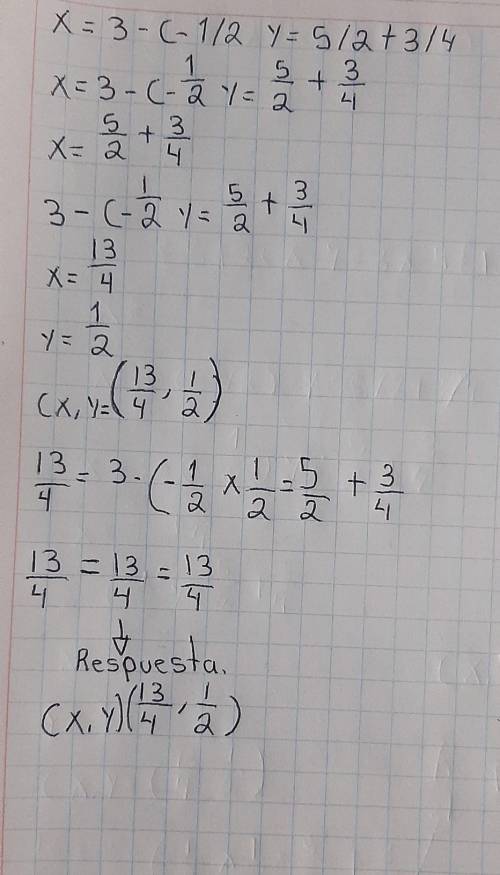 x = 3 - (-1/2 y = 5/2 + 3/4
x = 3 - (-1/2 y = 5/2 + 3/4
x = 5/2 + 3/4
3 - (-1/2 y = 5/2 + 3/4
x = 13/4
y = 1/2
(x, y = (13/4, 1/2)
13/4 = 3 - (-1/2 x 1/2 = 5/2 + 3/4
13/4 = 13/4 = 13/4
↓
Respuesta.
(x, y) (13/4, 1/2)